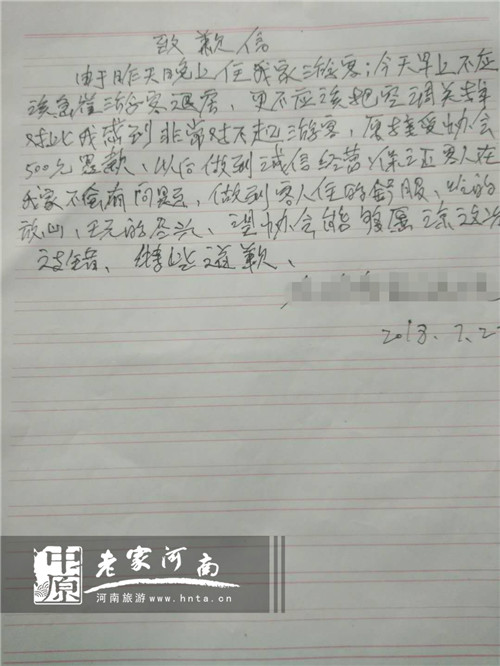 致歉信
由于昨天晚上住我家游客;今天早上不应
该急催游客退房、更不应该把空调关掉
对此我感到非常对不起游客,愿接受协会
500元罚款、以后做到诚信经营、保证客人在
我家不会有问题,做到客人住的舒服、吃的
放心、玩的尽兴、望协会能够原谅这次
过错、特此道歉、
2018.7.2
中原
老家河南
河南旅游 www.hnta.cn